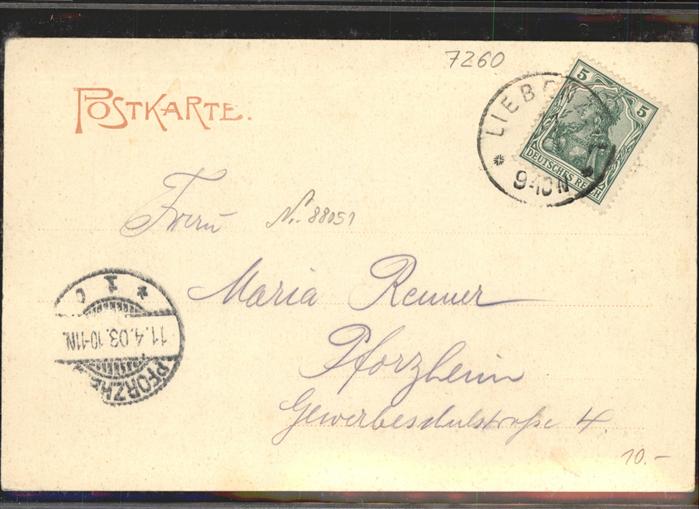 7260
POSTKARTE.
5 5
DEUTSCHES REICH
* LIEBEN
9-10N
Frau
No. 88051
Maria Renner
Pforzheim
Gewerbeschulstraße 4.
* 1
11.4.03.10-11N.
PFORZHE
10.-